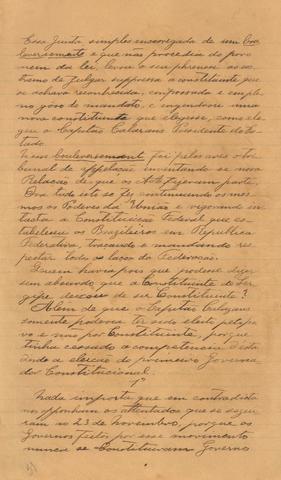 Essa Junta simples encarregada de um boule
versement e que não procedia do povo
nem da lei, levou o seu phrenesi ao ex
tremo de julgar suppressa a constituinte que
se achava reconhecida, empossada e em ple
no goso de mandato, e engendrou uma
nova constituinte que elegesse, como ele
geu o Capitão Calazans Presidente do Es-
tado.
N'esse bouleversement foi pelos ares o tri
bunal de appelação inventando se nova
Relação de que os chefes fizeram parte.
Ora tudo isto se fez continuando os mes-
mos os Poderes da União e vigorando in
tacta a Constituição Federal que es-
tabeleceu os Brazileiros em Republica
Federativa, traçando e mandando res-
peitar todos os laços da Federação.
Quem havia pois que podesse dizer
sem absurdo, que a Constituinte de Ser
gipe deixou de ser Constituinte?
Além de que o Capitão Calazans
somente poderia ter sido eleito pelo po
vo e não por Constituinte, porque
tinha cessado a competencia d'esta
ante a eleição do primeiro Governa
dor Constitucional.
1º
Nada importa que em contradicta
nos opponham os attentados que se segui
ram ao 23 de Novembro, porque os
Governos feitos por esse movimento
nunca se Constituiram Governo